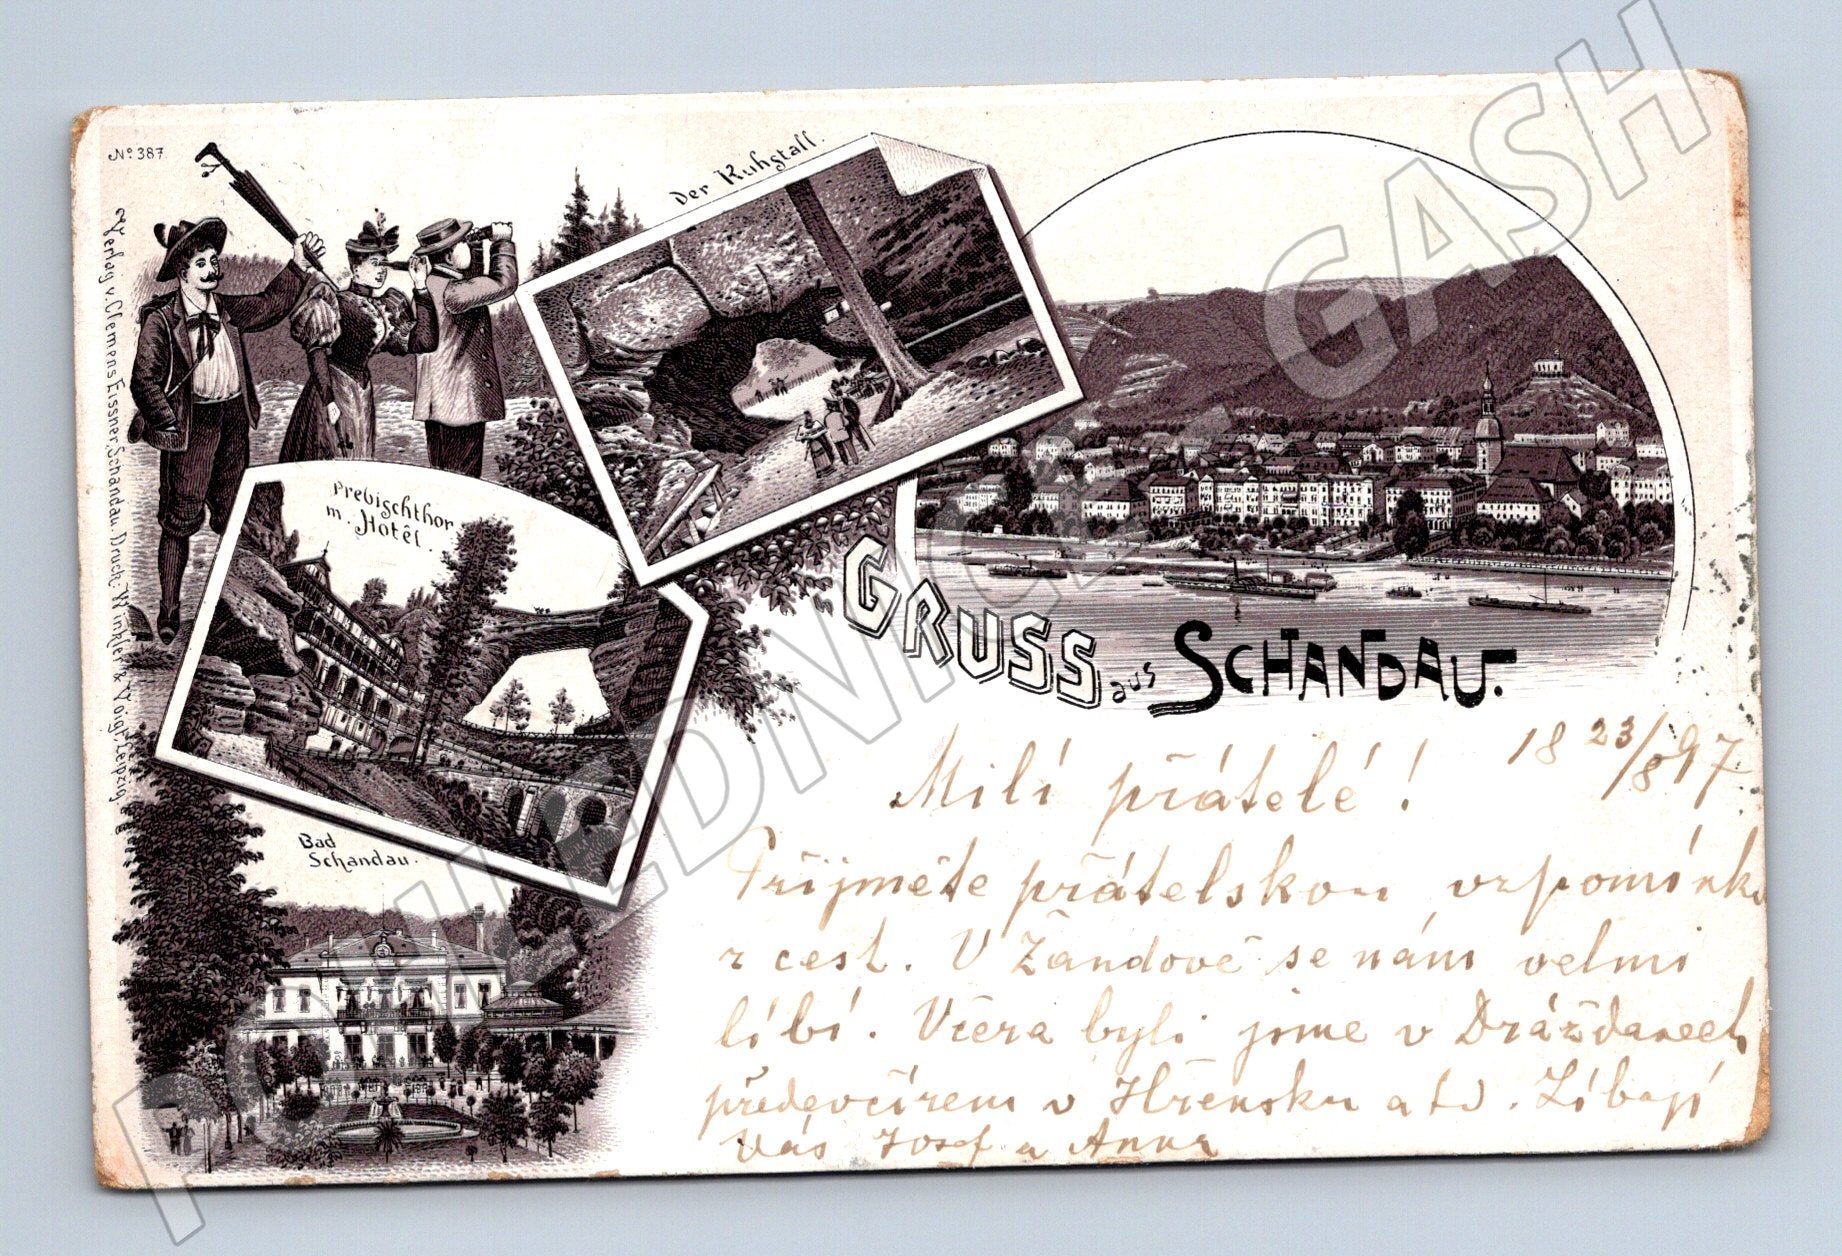 Nº 387
Verlag v. Clemens Eissner Schandau. Druck: Winkler & Voigt, Leipzig
Der Kuhstall.
Prebischthor
m. Hotêl.
Bad
Schandau.
GRUSS aus SCHANDAU.
18 23/8 97
Milí přátelé!
Přijměte přátelskou vzpomínku
z cest. V Žandově se nám velmi
líbí. Včera byli jsme v Drážďanech
předevčírem v Hřensku atd. Líbají
Vás Josef a Anna
POHLEDNICE-GASH